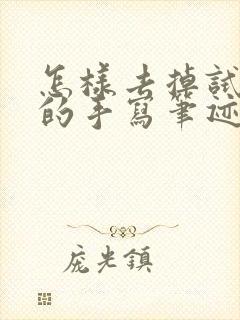 怎樣去掉試
的手寫筆迹
庞光鎮